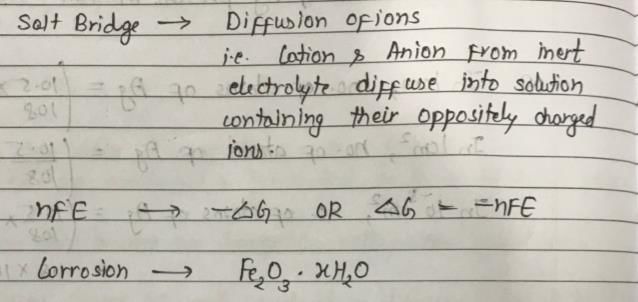 Salt Bridge → Diffusion of ions
i.e. Cation & Anion from inert
electrolyte diffuse into solution
containing their oppositely charged
ions.
nFE → -△G OR △G = -nFE
Corrosion → Fe₂O₃ . xH₂O